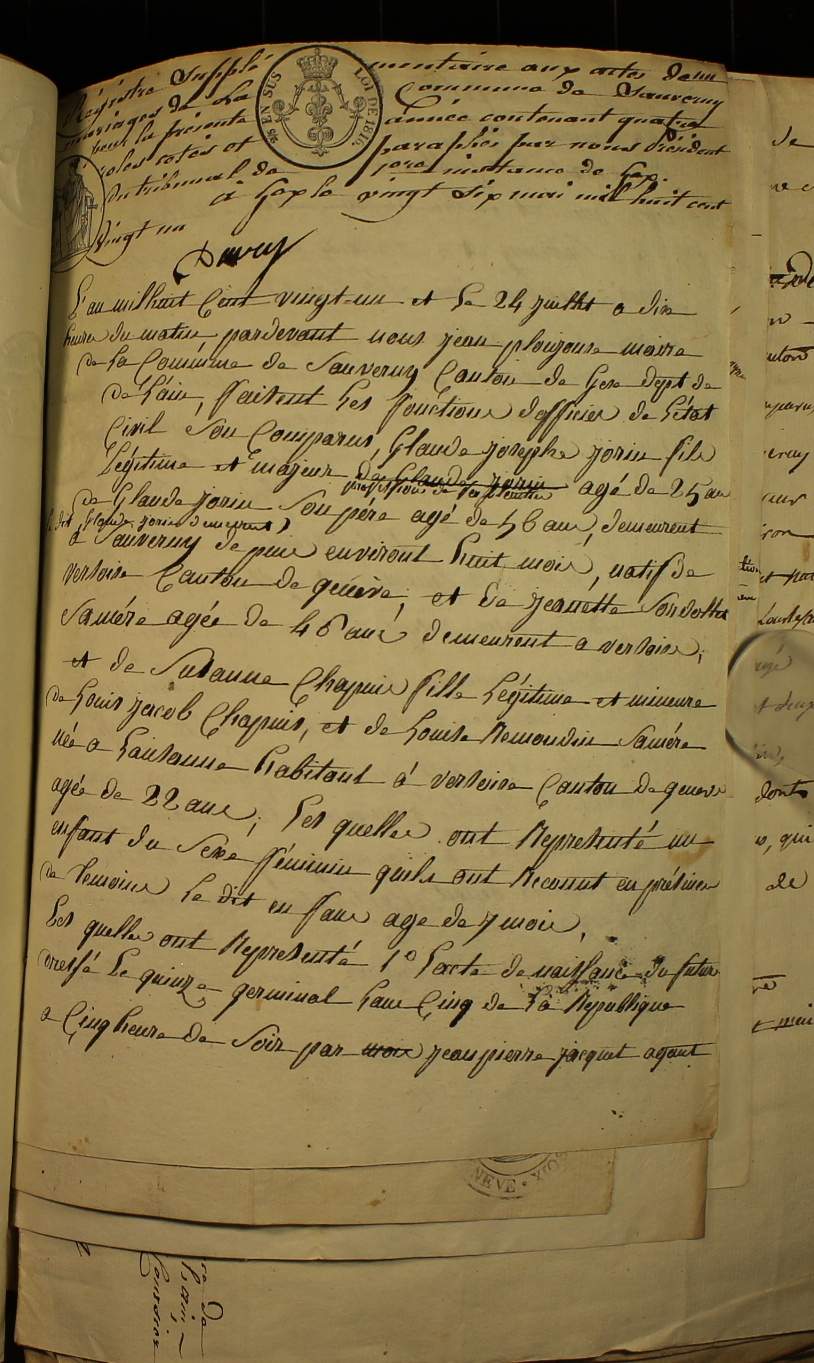 Régistre Supplé mentaire aux actes de
mariages de La Commune de Sauverny
pour la présente année contenant quatre
roles cotés et paraphés par nous Président
du tribunal de 1ere instance de Gex.
à Gex le vingt Six mai mil huit cent
vingt un
25 EN SUS LOI DE 1816.
L'an milhuit Cent vingt-un et Le 24 juillet a dix
heure du matin pardevant nous jean ploujoux maire
de La Commune de Sauverny Canton de Gex dept de
de L'ain, faisent Les fonctions d'officier de L'état
Civil Son Comparus Glaude Josephe jorin fils
Légitime et majeur de Glaude Jorin agé de 25 ans
profession de
de Glaude jorin Son père agé de 56 ans, demeurent
le dit Glaude jorin demeurent
à Sauverny depuis environt huit mois, natif de
versoix Canton de genève, et de jeanette
Samére agée de 46 ans demeurent a versoix;
et de Susanne Chapuis fille Légitime et mineure
de Louis Jacob Chapuis, et de Louise Remondin Samére
née a Lausanne habitant à versoix Canton de geneve
agée de 22 ans; Les quelles ont Représenté un
enfant du Sexe féminin quils ont Reconnut en présence
de temoins Le dit enfans age de 7 mois,
Les quelles ont Représenté 1º Lacte de naissance du futur
dressé Le quinze germinal Lans Cinq de La République
a Cinq heure de Soir par mois jean pierre jacquet agent
NEVE